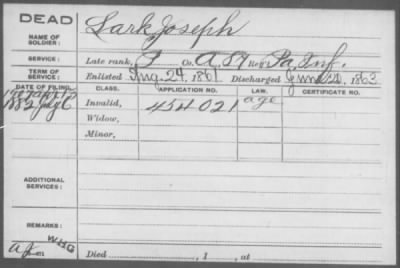 DEAD
NAME OF SOLDIER: Lark Joseph
SERVICE: Late rank, Co. A, Reg't Pa. Inf.
TERM OF SERVICE: Enlisted Aug. 24, 1861 Discharged June 20, 1863
DATE OF FILING. CLASS. APPLICATION NO. LAW. CERTIFICATE NO.
1882 July 6 Invalid, 454021 age
Widow,
Minor,
ADDITIONAL SERVICES:
REMARKS:
WHG
Died , 1 , at